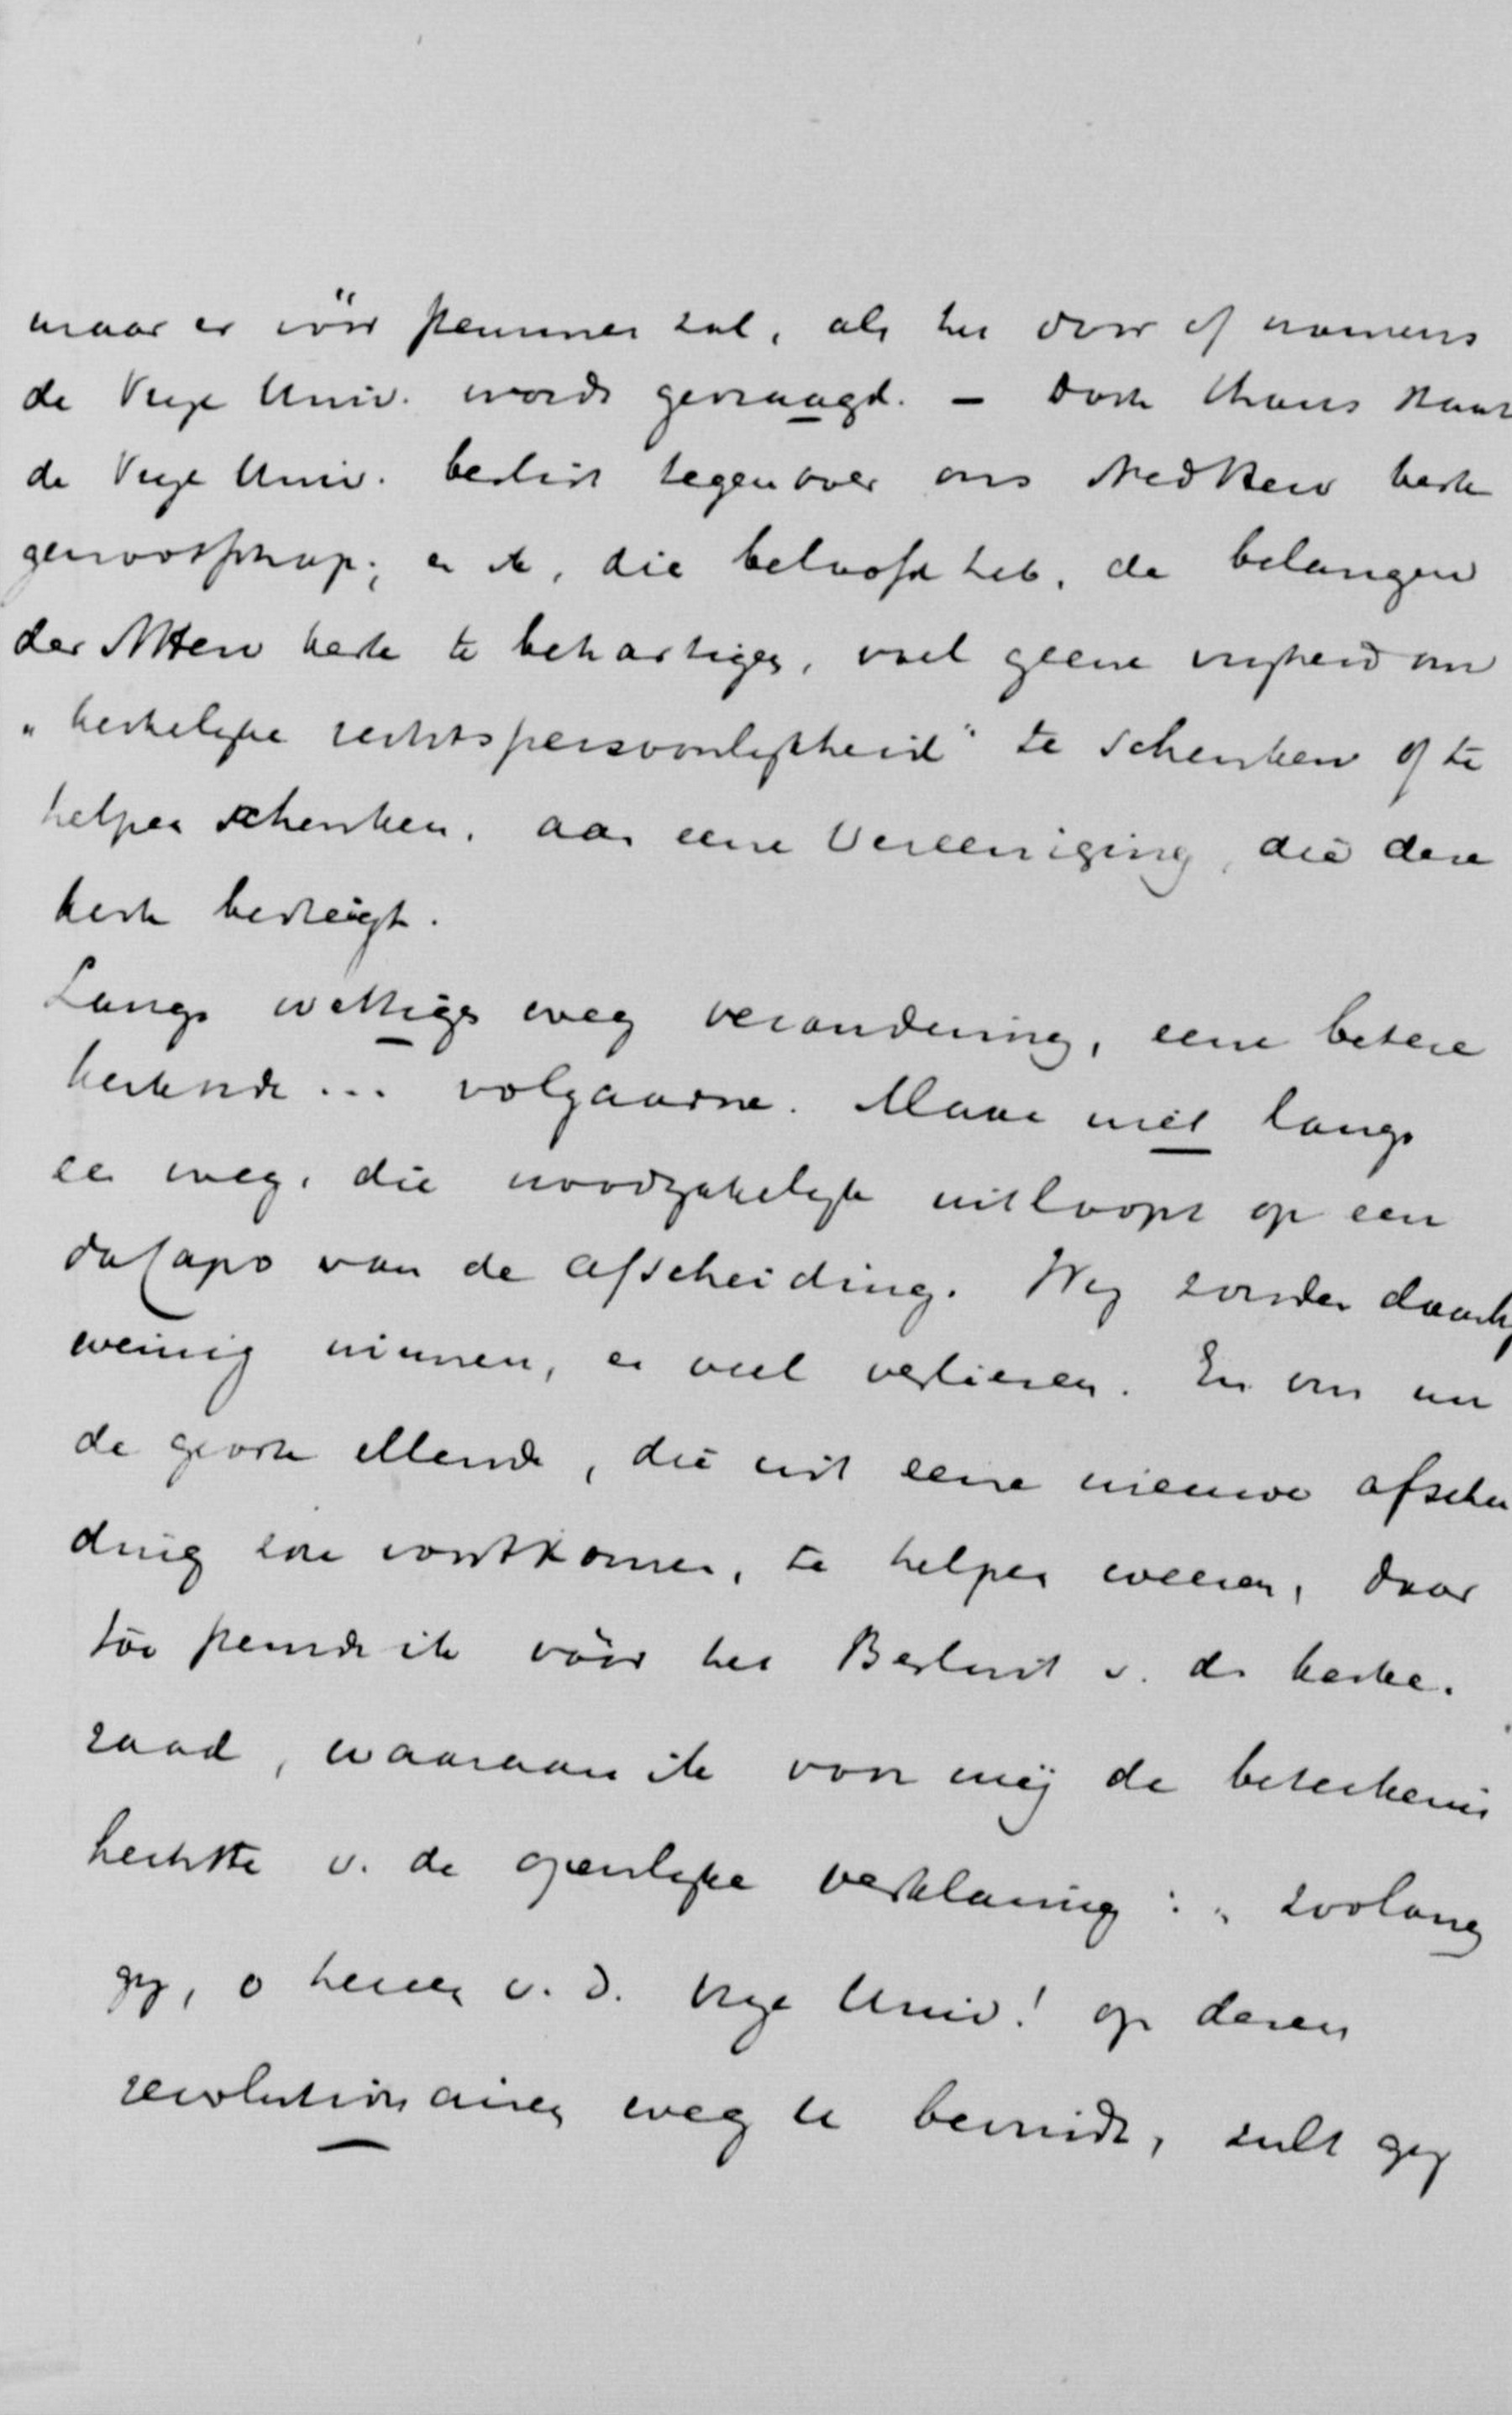 maar er vóór stemmen zal, als het door of namens
de Vrije Univ. wordt gevraagd. — Doch thans staat
de Vrije Univ. beslist tegenover ons Ned Herv kerk
genootschap; en ik, die beloofd heb, de belangen
der NHerv kerk te behartigen, voel geene vrijheid om
"kerkelijke rechtspersoonlijkheid" te schenken of te
helpen schenken, aan eene Vereeniging, die deze
kerk bedreigt.
Langs wettigen weg verandering, eene betere
kerkorde ... volgaarne. Maar niet langs
een weg, die noodzakelijk uitloopt op een
da Capo van de Afscheiding. Wij zouden daarbij
weinig winnen, en veel verliezen. En om nu
de groote ellende, die uit eene nieuwe afschei
ding zou voortkomen, te helpen weeren, daar
toe stemde ik vóór het Besluit v. de kerke.
raad, waaraan ik voor mij de beteekenis
hechtte v. de openlijke verklaring: „zoolang
gij, o heeren v. d. Vrije Univ.! op dezen
revolutionairen weg u bevindt, zult gij